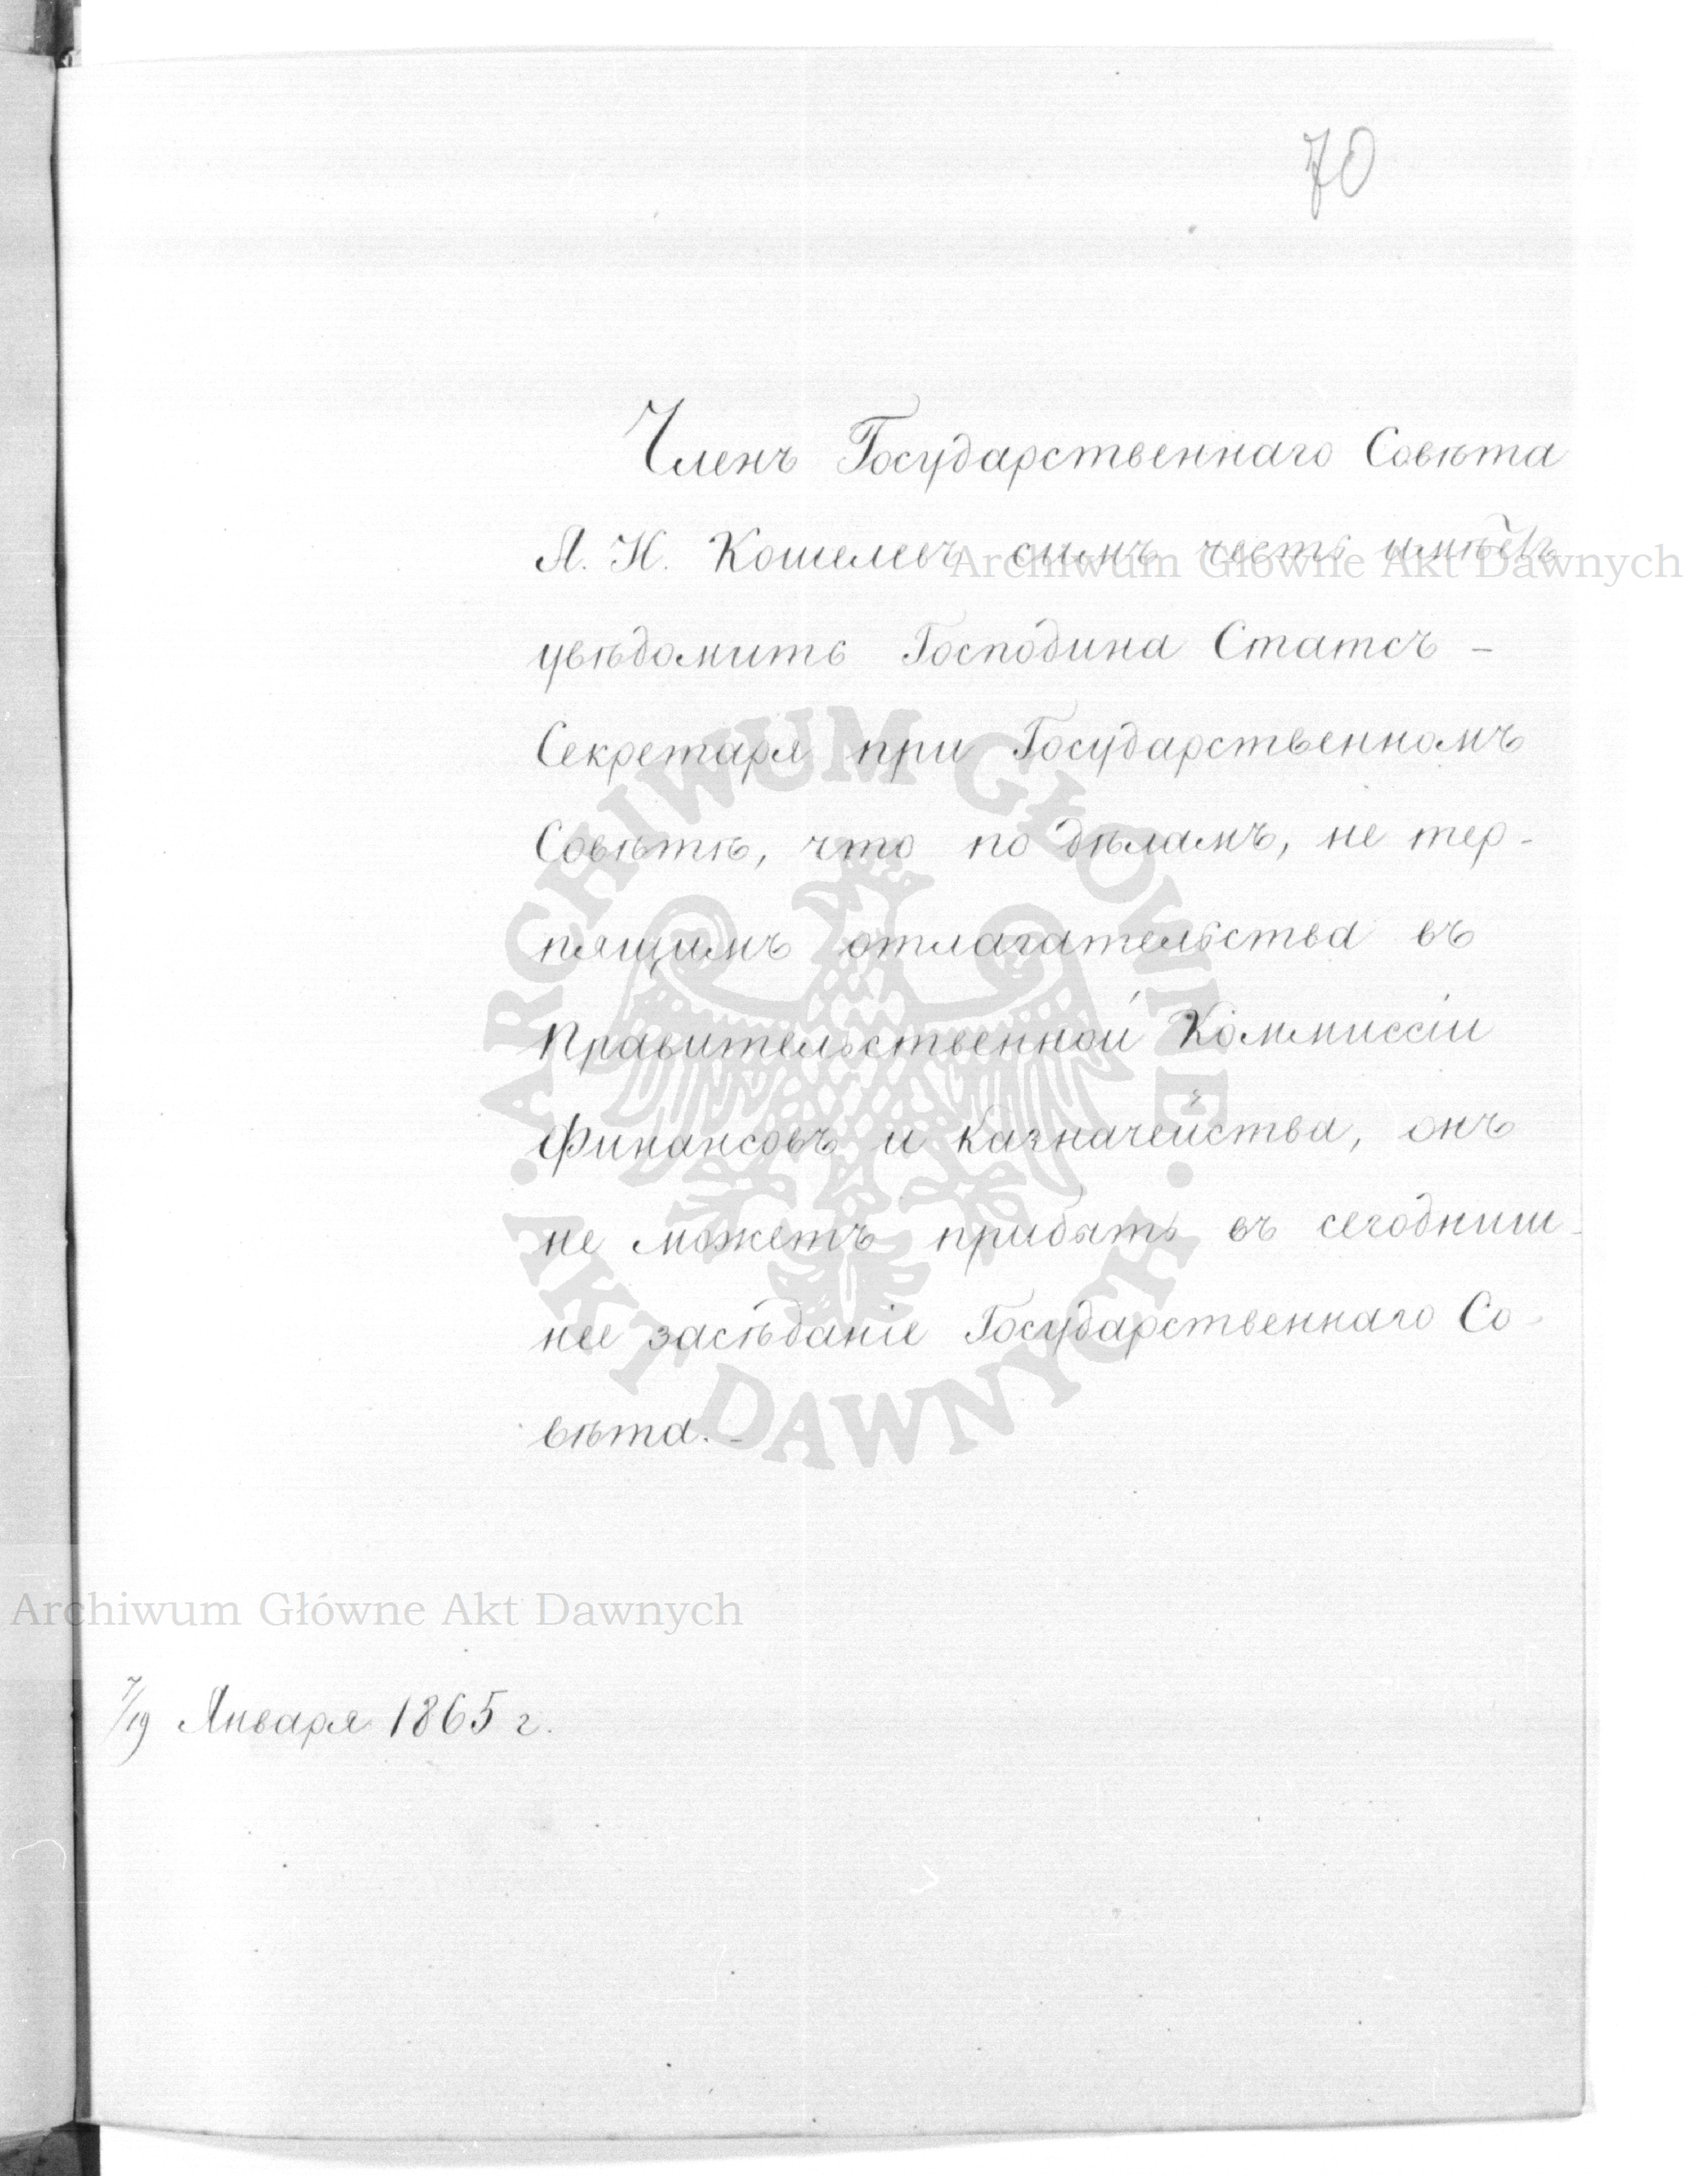 70
Членъ Государственнаго Совѣта
А. И. Кошелевъ симъ честь имѣетъ
увѣдомить Господина Статсъ -
Секретаря при Государственномъ
Совѣтѣ, что по дѣламъ, не тер -
пящимъ отлагательства въ
Правительственной Коммиссіи
Финансовъ и Казначейства, онъ
не можетъ прибыть въ сегодниш -
нее засѣданіе Государственнаго Со -
вѣта. -
7/19 Января 1865 г.
Archiwum Główne Akt Dawnych
ARCHIWUM GŁÓWNE
· AKT DAWNYCH ·
Archiwum Główne Akt Dawnych